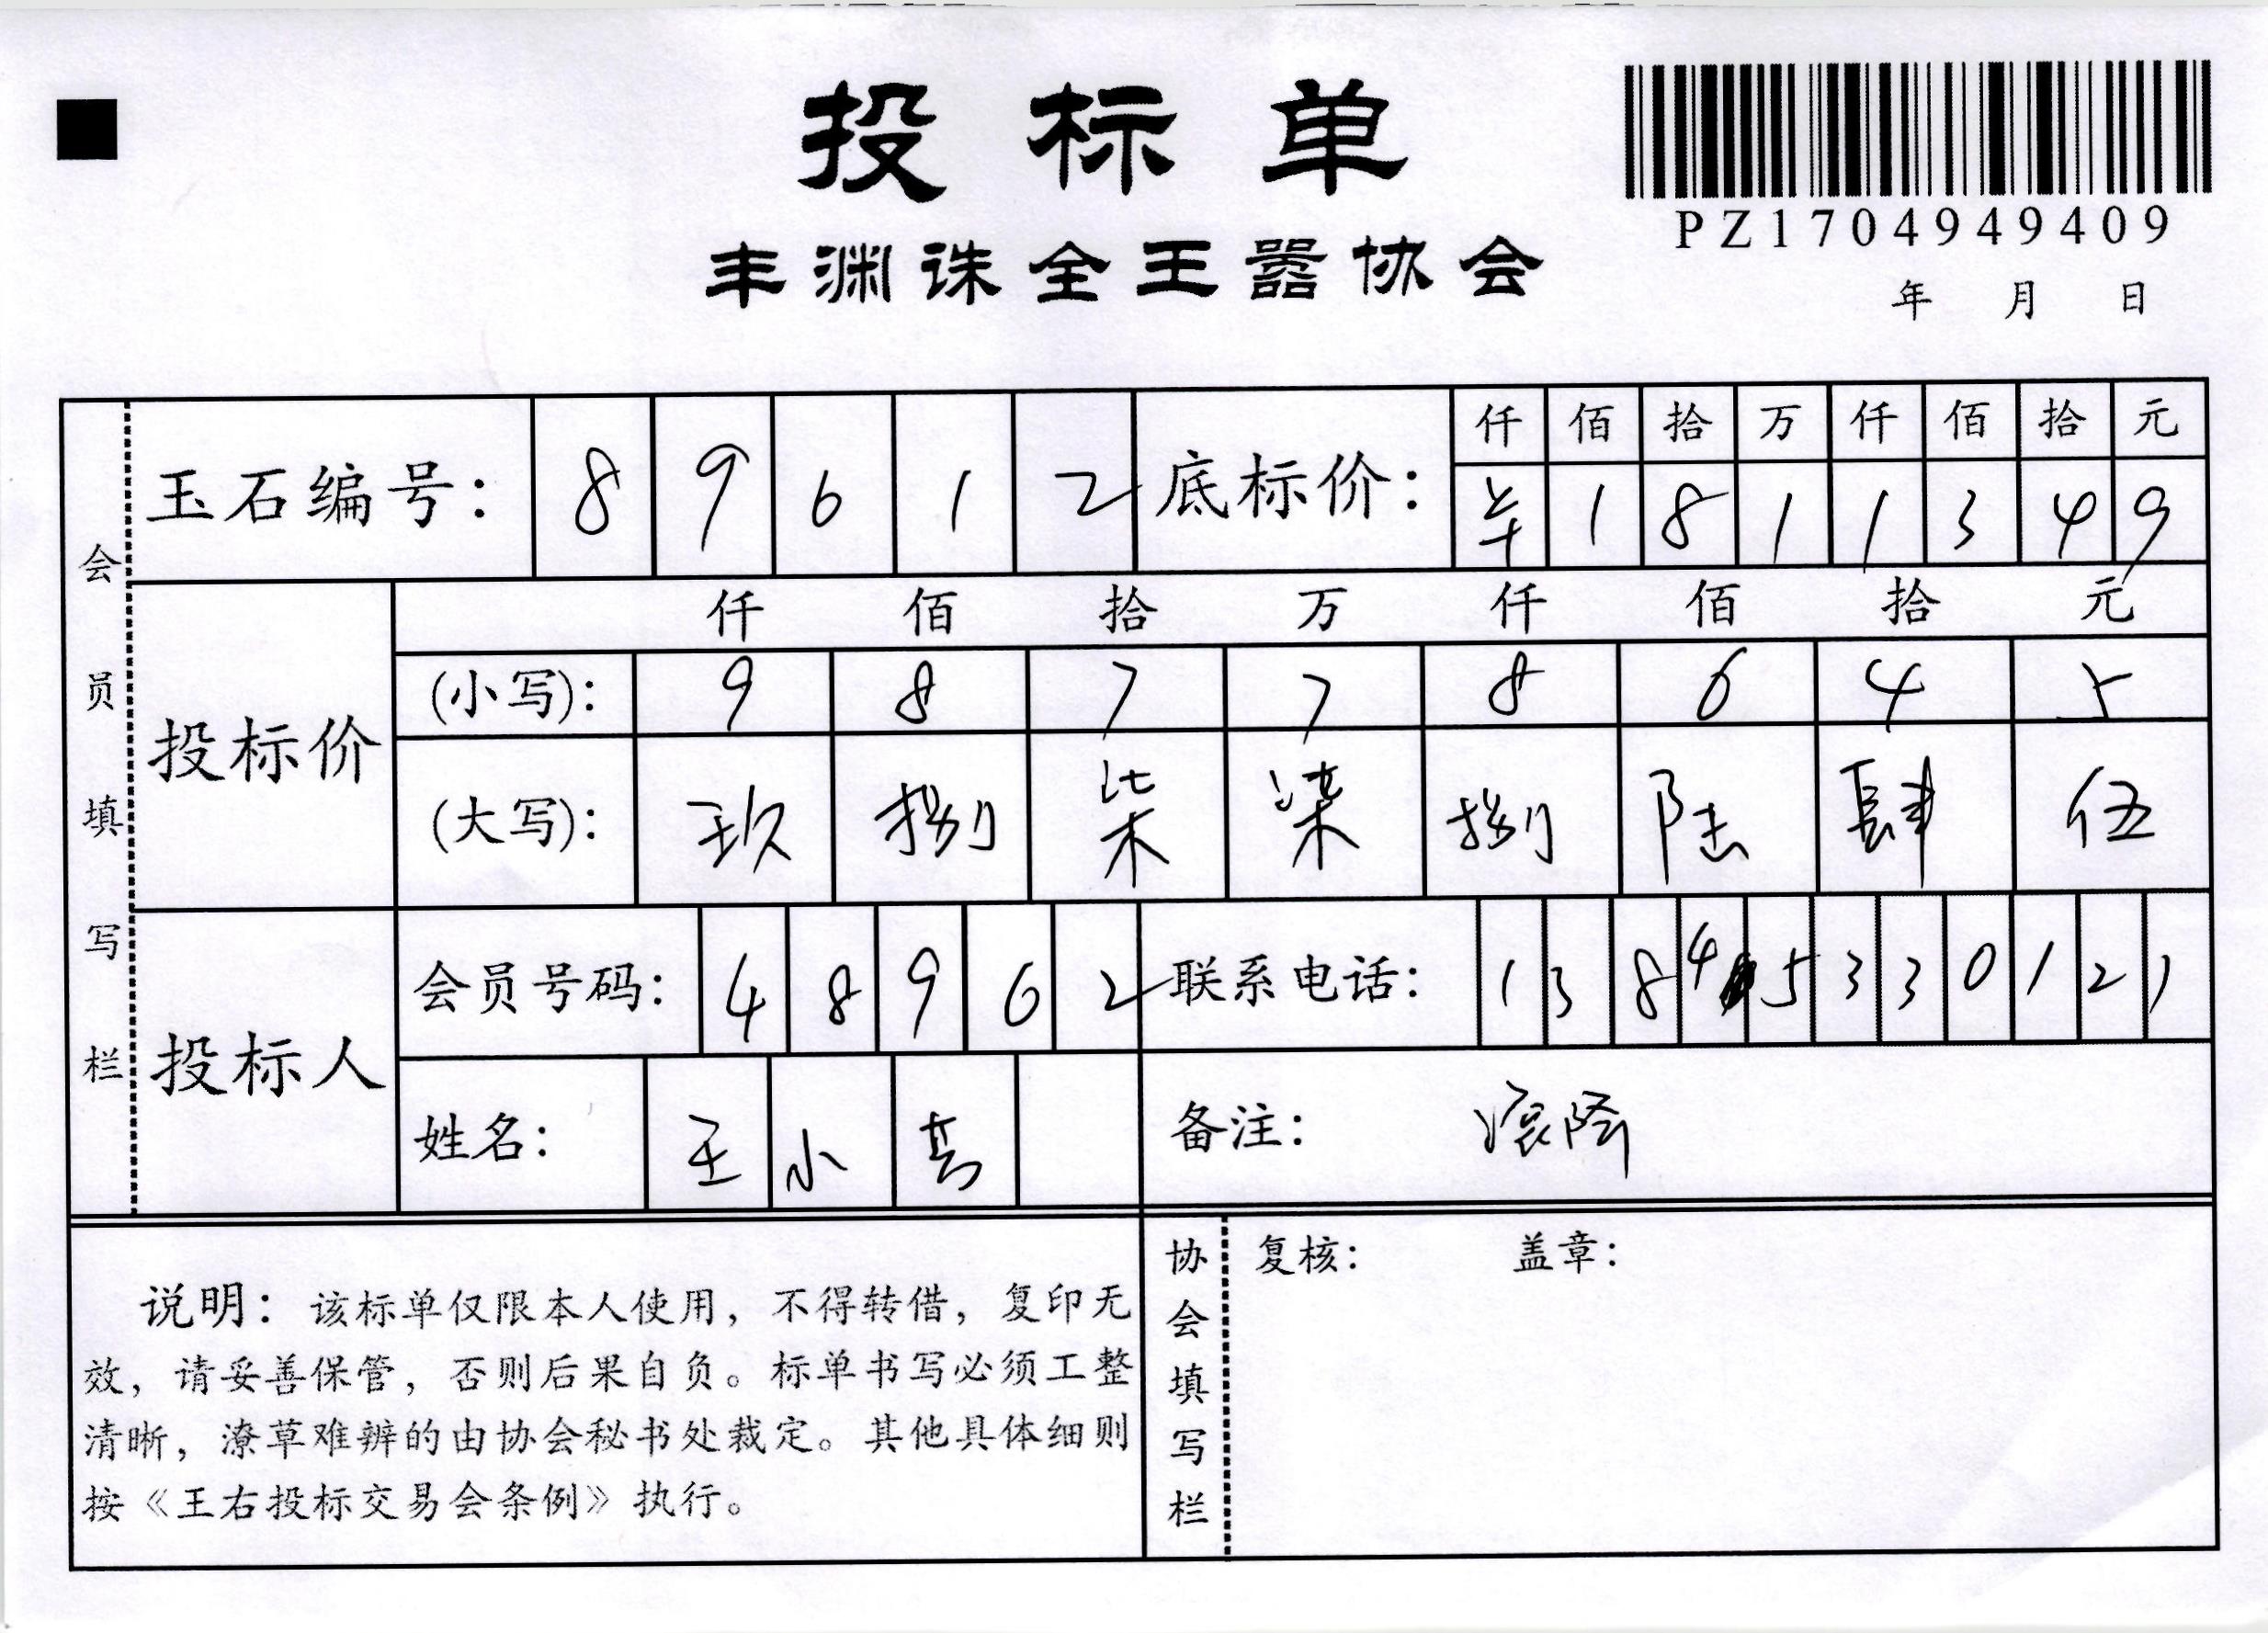 投标单
PZ1704949409
丰渊诛全王嚣协会
年 月 日
会员填写栏
玉石编号: 8 9 6 1 2
底标价: 仟 佰 拾 万 仟 佰 拾 元
1 8 1 1 3 4 9
投标价
仟 佰 拾 万 仟 佰 拾 元
(小写): 9 8 7 7 8 6 4 5
(大写): 玖 捌 柒 柒 捌 陆 肆 伍
投标人
会员号码: 4 8 9 6 2
联系电话: 1 3 8 4 5 3 3 0 1 2 1
姓名: 王 小
备注:
说明: 该标单仅限本人使用, 不得转借, 复印无
效, 请妥善保管, 否则后果自负。标单书写必须工整
清晰, 潦草难辨的由协会秘书处裁定。其他具体细则
按《王右投标交易会条例》执行。
协会填写栏
复核: 盖章: